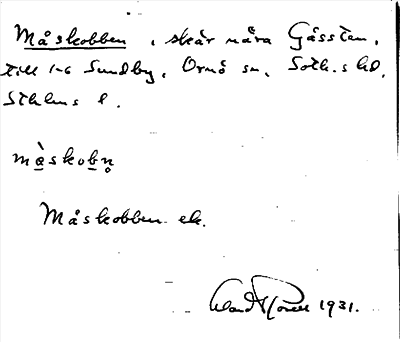 Måskobben, skär nära Gåssten,
till 1-6 Sundby, Ornö sn, Soth.s hd,
Sthlms l.
må̀skobn̥
Måskobben ek.
1931.